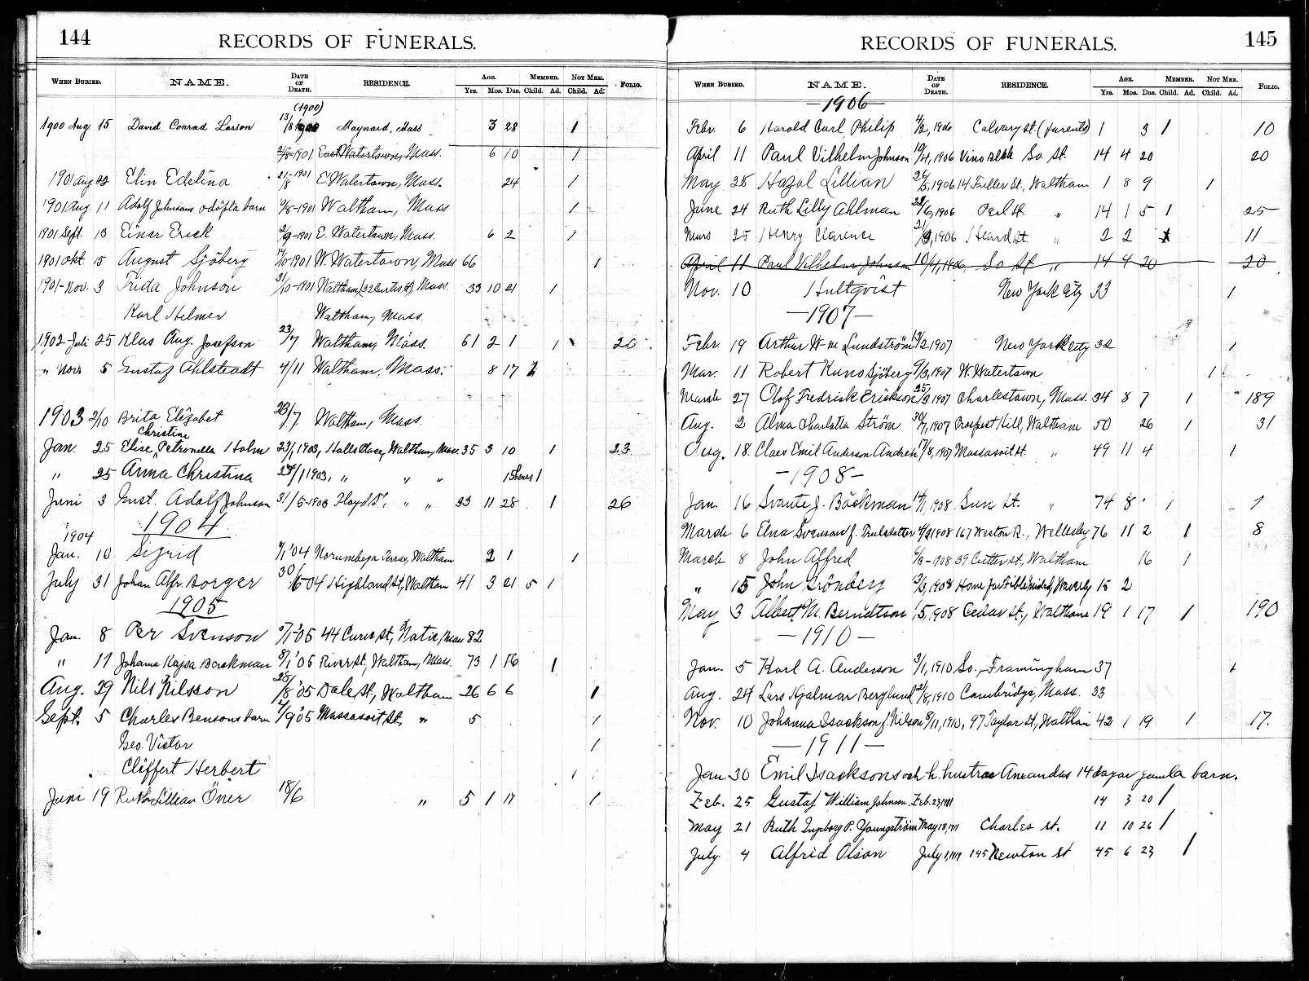 144
RECORDS OF FUNERALS.
WHEN BURIED. NAME. DATE OF DEATH. RESIDENCE. AGE. Yrs. Mos. Das. MEMBER. Child. Ad. NOT MEM. Child. Ad. FOLIO.
(1900)
1900 Aug 15 David Conrad Larson 13/8 Maynard, Mass 3 28 1
1901 East Watertown, Mass. 6 10 1
1901 Aug 22 Elin Edelina 21/8-1901 E. Watertown, Mass. 24 1
1901 Aug 11 Adolf Johnsons odöpta barn /8-1901 Waltham, Mass 1
1901 Sept. 13 Einar Erick /9-1901 E. Watertown, Mass. 6 2 1
1901 Okt 5 August Sjöberg /10-1901 W. Watertown, Mass 66 1
1901-Nov. 3 Frida Johnson 31/10-1901 Waltham (32 Curtis St) Mass 33 10 21 1
Karl Helmer Waltham, Mass.
1902 Juli 25 Klas Aug. Josefson 23/7 Waltham, Mass. 61 2 1 1
" Nov 5 Gustaf Ahlstradt 4/11 Waltham, Mass. 8 17
1903 2/10 Brita Elizabet 28/7 Waltham, Mass.
Christine
Jan. 25 Elise Petronella Holm 23/1, 1903, Halls Place, Waltham, Mass. 35 3 10 1 23
" 25 Anna Christina 24/1 1903, " " " 1
Juni 3 Gust. Adolf Johnson 31/5-1903 Floyd St. " " 33 11 28 1 26
1904
1904
Jan. 10 Sigrid /1 '04 Norumbega Terrace, Waltham 2 1 1
July 31 Johan Alfr. Borger 30/ 04 Highland St, Waltham 41 3 21 5 1
1905
Jan. 8 Per Svenson /1 '05 44 Curve St, Natic, Mass 82
" 11 Johanna Kajsa Backman 8/1 '05 River St. Waltham, Mass. 73 1 16 1
Aug. 29 Nils Nilsson 26/8 '05 Dale St, Waltham 26 6 6 1
Sept. 5 Charles Bensons barn /9 '05 Massasoit St, " 5 1
Geo. Victor 1
Cliffert Herbert 1
Juni 19 Ruth Lillian Öner 18/6 " 5 1 17 1
145
RECORDS OF FUNERALS.
WHEN BURIED. NAME. DATE OF DEATH. RESIDENCE. AGE. Yrs. Mos. Das. MEMBER. Child. Ad. NOT MEM. Child. Ad. FOLIO.
—1906—
Febr. 6 Harold Carl Philip 4/2, 1906 Calvary St. (parents) 1 3 1 10
April 11 Paul Vilhelm Johnson 10/4, 1906 So. St. 14 4 20 20
May 28 Hazel Lillian 26/5, 1906 14 Fuller St, Waltham 1 8 9 1
June 24 Ruth Lilly Ahlman 22/6, 1906 Perl St. " 14 1 5 1 25
Mars 25 Henry Clarence 21/3, 1906 Heard St. " 2 2 11
April 11 Paul Vilhelm Johnson 10/4, 1906 So St " 14 4 20 20
Nov. 10 Hultqvist New York City 33 1
—1907—
Febr. 19 Arthur Wm. Lundström 13/2 1907 New York City 32 1
Mar. 11 Robert Kuno Sjöberg 9/3, 1907 W. Watertown 1
March 27 Olof Fredrick Erickson 25/3 1907 Charlestown, Mass. 34 8 7 1 189
Aug. 2 Alma Charlotta Ström 30/7, 1907 Prospect Hill, Waltham 50 26 1 31
Aug. 18 Claes Emil Anderson Andreh 17/8, 1907 Massasoit St. " 49 11 4 1
—1908—
Jan. 16 Svante J. Bäckman 14/1, 1908 Sun St. " 74 8 1 7
March 6 Elna Svenson 4/3 1908 167 Weston R., Wellesley 76 11 2 1 8
March 8 John Alfred 6/3-1908 39 Cutter St, Waltham 16 1
" 15 John Grönberg 1908 Home for Feebleminded, Waverly 15 2
May 3 Albert M. Berndtson 1/5, 1908 Cedar St, Waltham 19 1 17 1 190
—1910—
Jan. 5 Karl A. Anderson 3/1, 1910 So. Framingham 37
Aug. 24 Lars Hjalmar Berglund 21/8, 1910 Cambridge, Mass. 33
Nov. 10 Johanna Isackson f. Nilson 8/11, 1910, 97 Taylor St, Waltham 42 1 19 1 17.
—1911—
Jan 30 Emil Isacksons och h. hustras Amandas 14 dagar gamla barn.
Feb. 25 Gustaf William Johnson. Feb. 23, 1911 14 3 20 1
May 21 Ruth Ingeborg P. Youngström May 18, 1911 Charles St. 11 10 26 1
July 4 Alfrid Olson July 1, 1911 145 Newton St 45 6 23 1